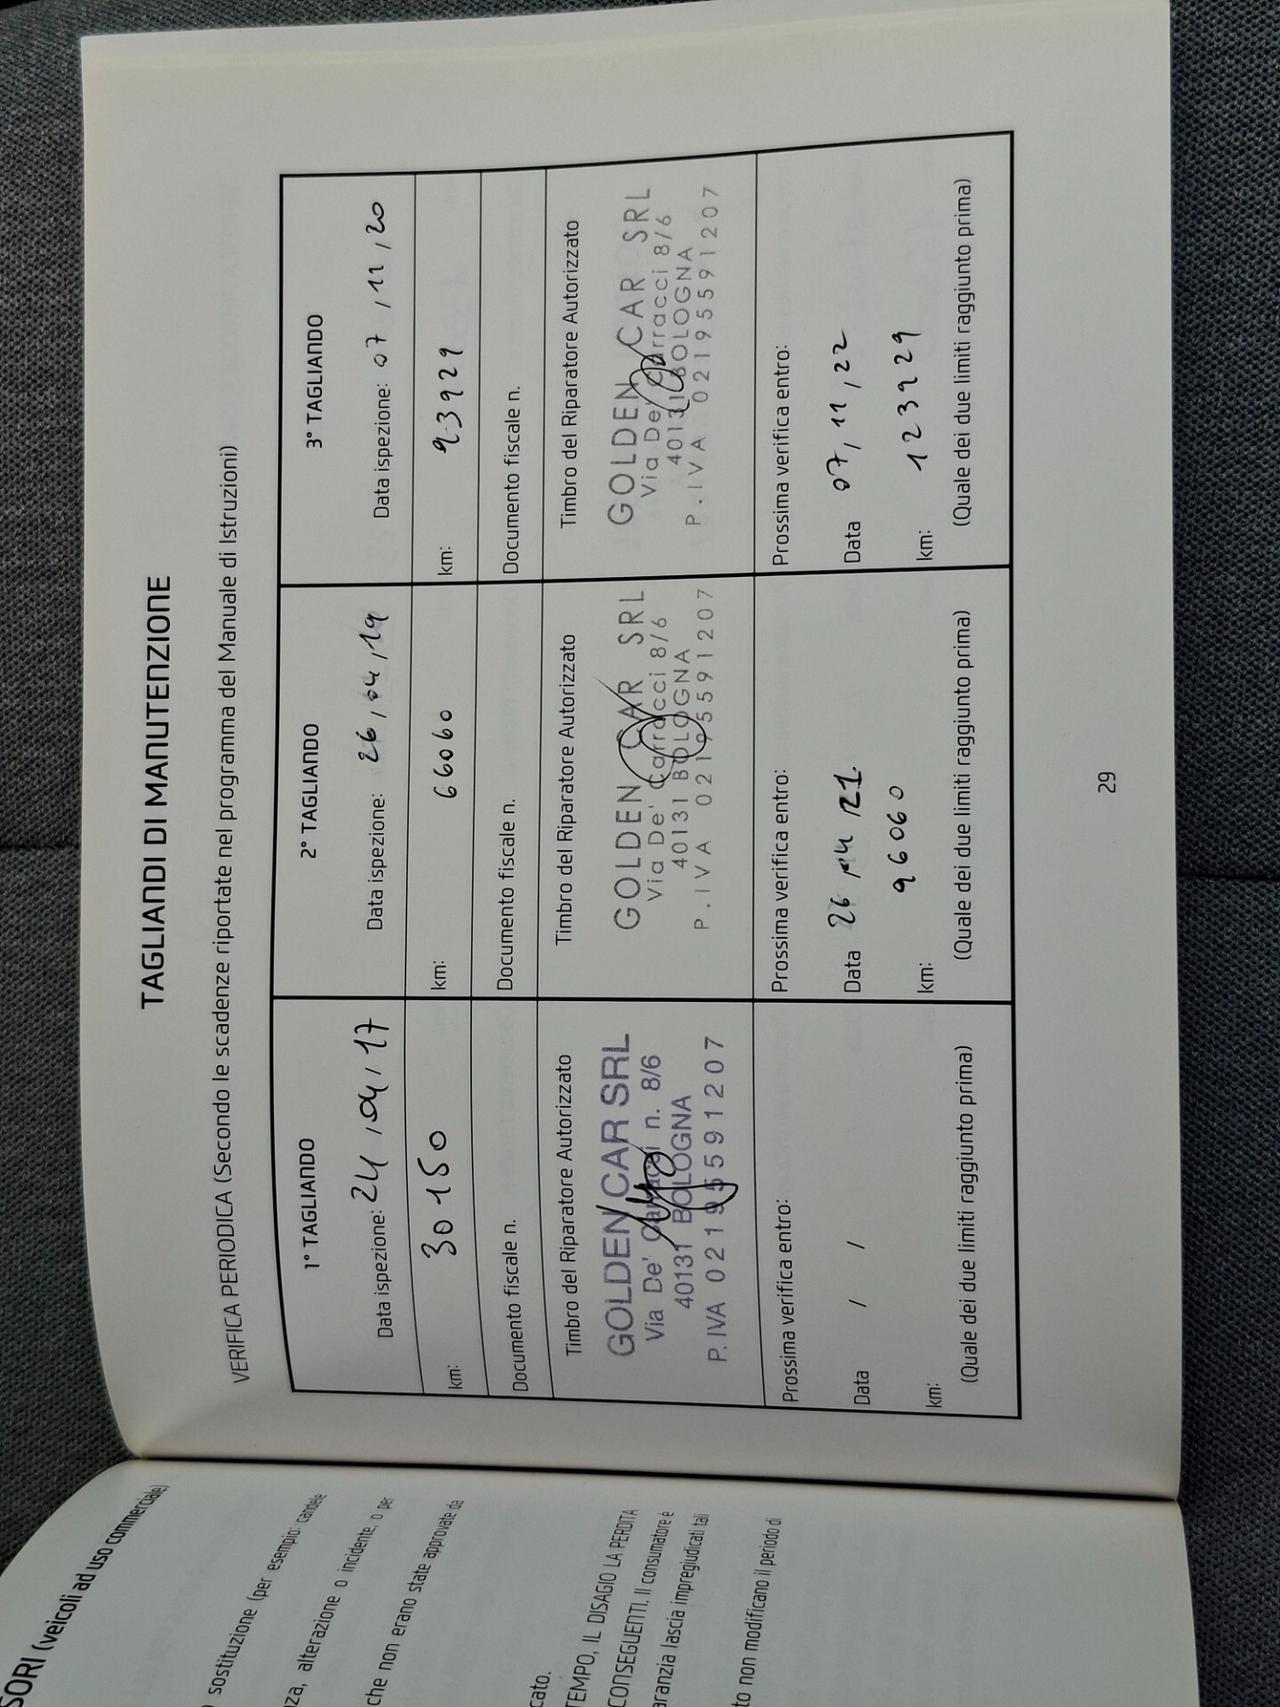 TAGLIANDI DI MANUTENZIONE
VERIFICA PERIODICA (Secondo le scadenze riportate nel programma del Manuale di Istruzioni)
1° TAGLIANDO
Data ispezione: 24/04/17
km: 30150
Documento fiscale n.
Timbro del Riparatore Autorizzato
GOLDEN CAR SRL
Via De' Carracci n. 8/6
40131 BOLOGNA
P. IVA 02195591207
Prossima verifica entro:
Data / /
km:
(Quale dei due limiti raggiunto prima)
2° TAGLIANDO
Data ispezione: 26/04/19
km: 66060
Documento fiscale n.
Timbro del Riparatore Autorizzato
GOLDEN CAR SRL
Via De' Carracci 8/6
40131 BOLOGNA
P.IVA 02195591207
Prossima verifica entro:
Data 26/04/21
km: 96060
(Quale dei due limiti raggiunto prima)
3° TAGLIANDO
Data ispezione: 07/11/20
km: 93929
Documento fiscale n.
Timbro del Riparatore Autorizzato
GOLDEN CAR SRL
Via De' Carracci 8/6
40131 BOLOGNA
P.IVA 02195591207
Prossima verifica entro:
Data 07/11/22
km: 123929
(Quale dei due limiti raggiunto prima)
29
SORI (veicoli ad uso commerciale)
sostituzione (per esempio: candele
za, alterazione o incidente, o per
che non erano state approvate da
cato.
TEMPO, IL DISAGIO LA PERDITA
CONSEGUENTI. Il consumatore è
aranzia lascia impregiudicati tali
to non modificano il periodo di